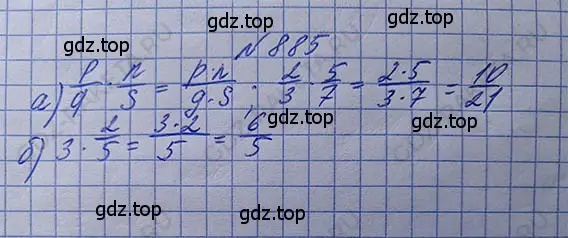 gdz.top gdz.top
№885
а) p/q · n/s = p·n/q·s; 2/3 · 5/7 = 2·5/3·7 = 10/21
gdz.top gdz.top
б) 3 · 2/5 = 3·2/5 = 6/5
gdz.top gdz.top gdz.top